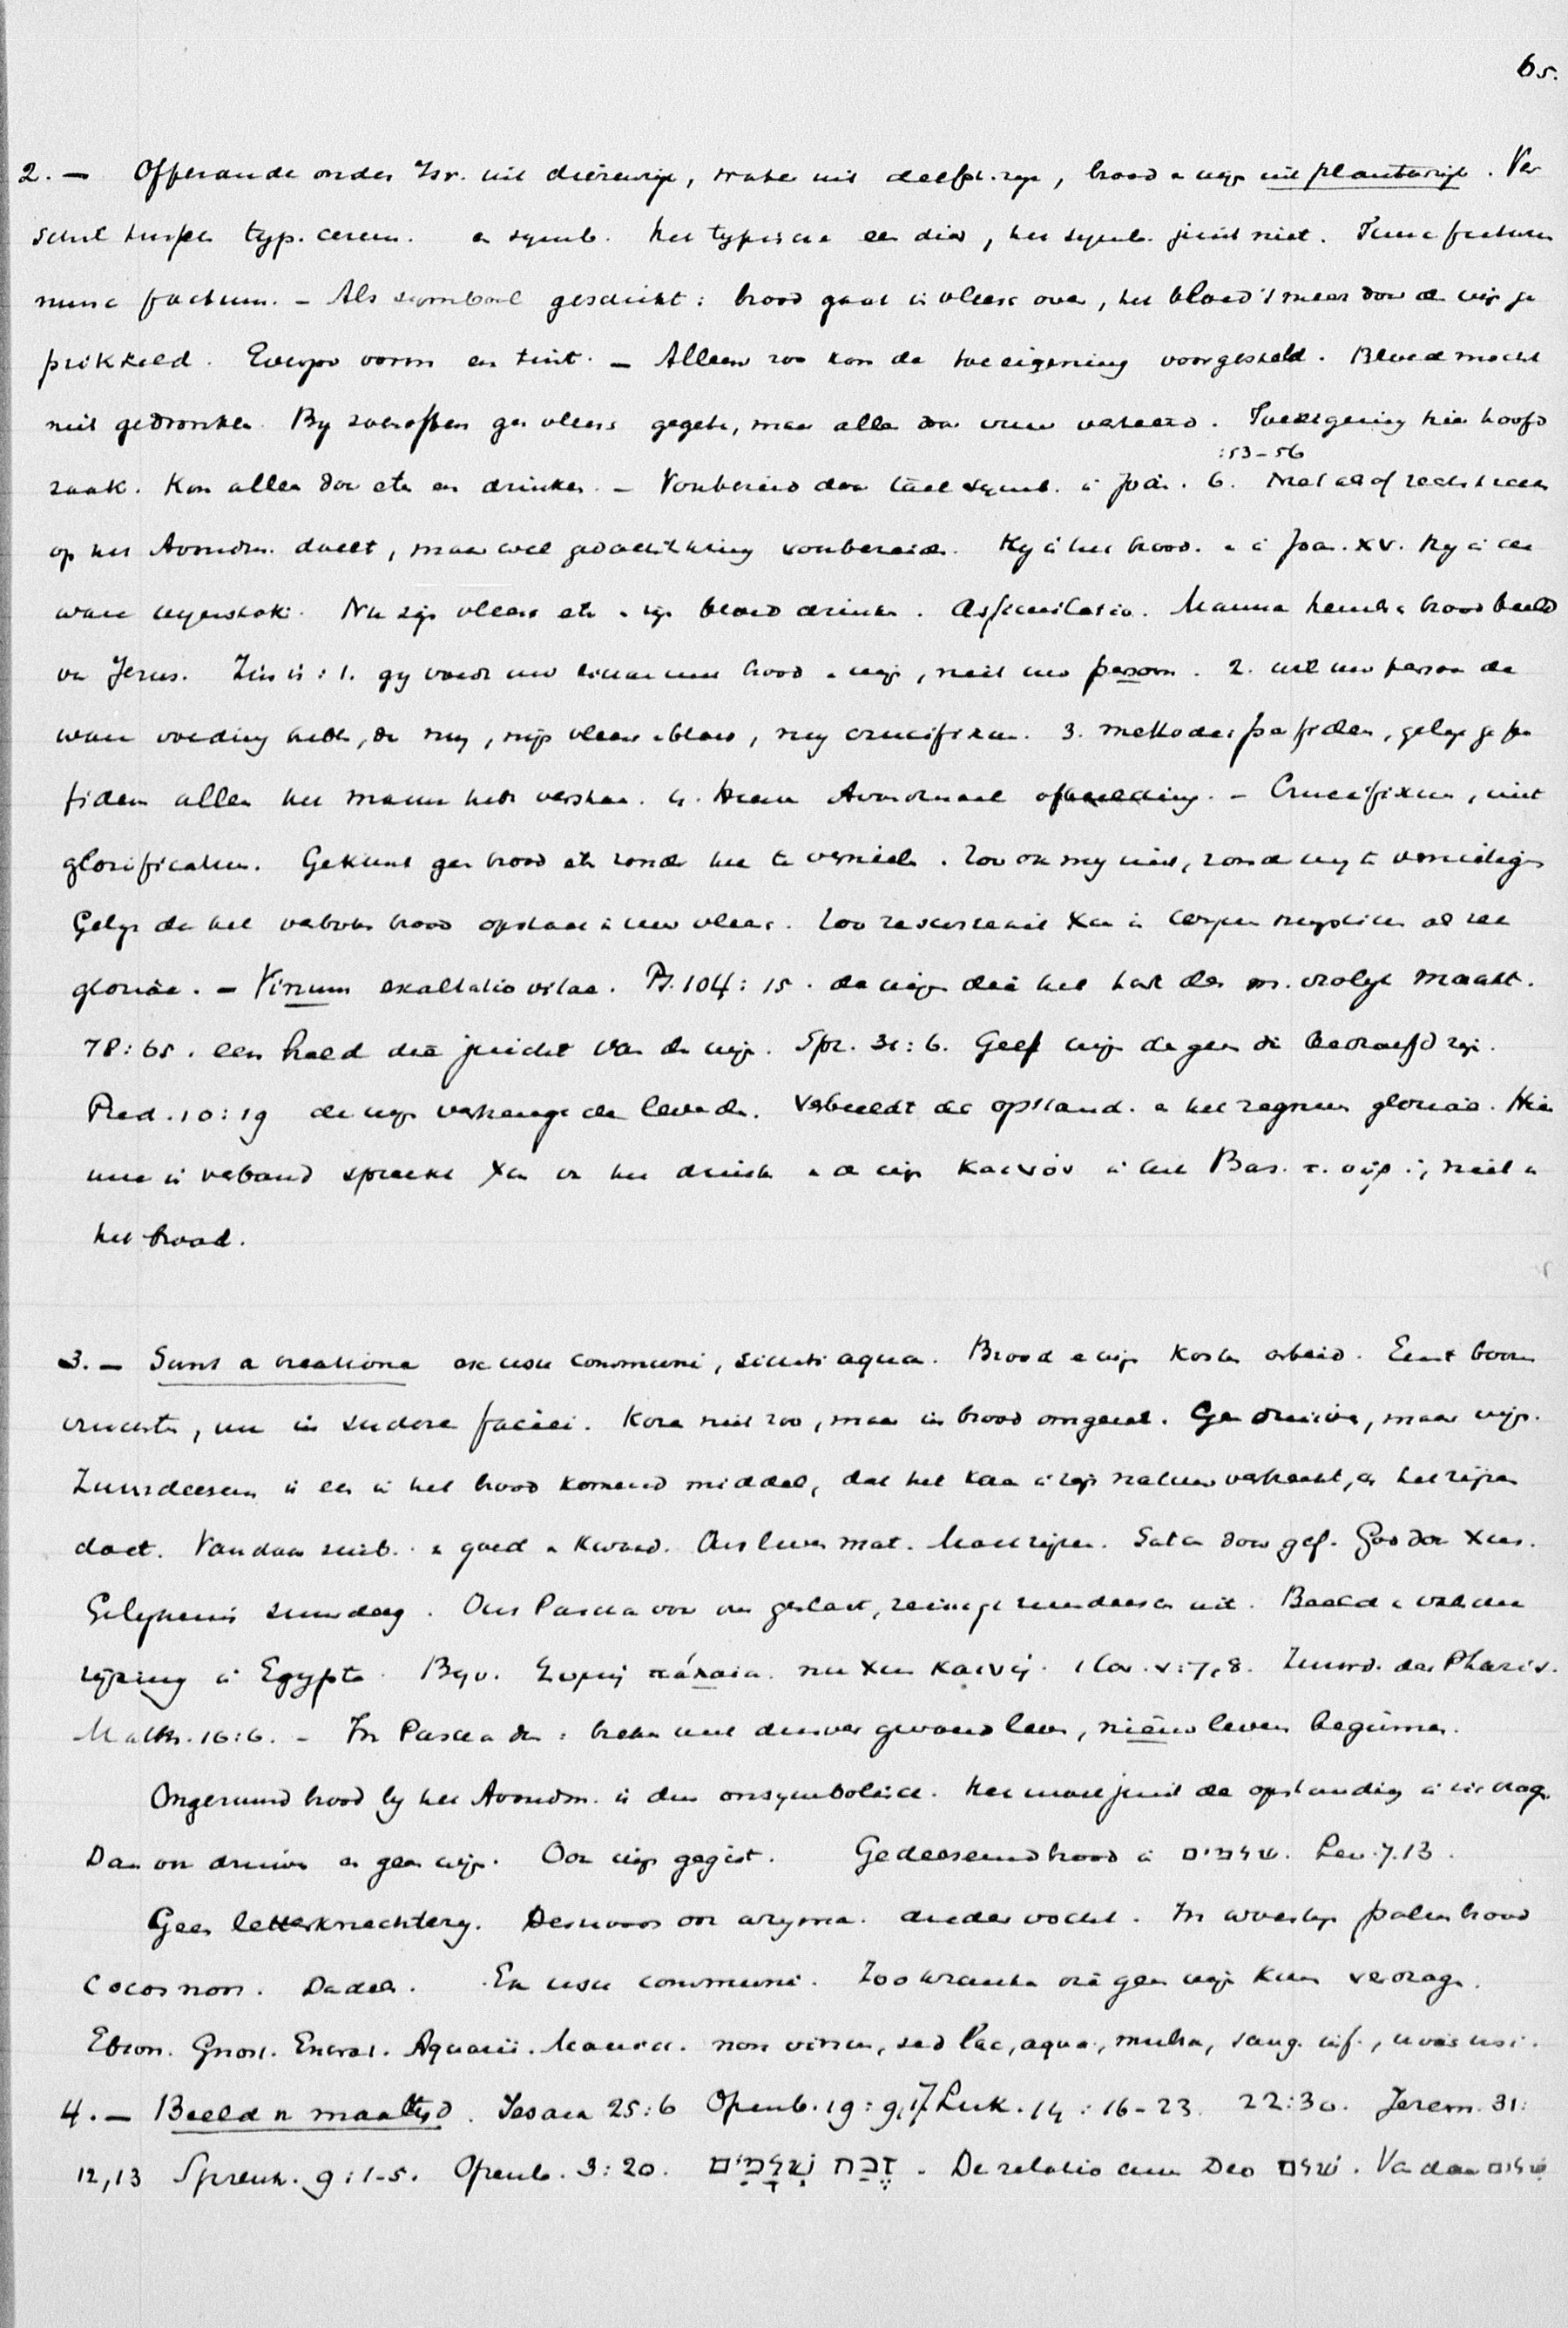 65.
2. — Offerande onder Isr. uit dierenrijk, water uit delfst. rijk, brood en wijn uit plantenrijk. Ver
schil tusschen typ. cerem. en symb. Het typische een dier, het symb. juist niet. Tunc futurum
nunc factum. — Als symbool geschikt: brood gaat in vleesch over, het bloed 't meest door de wijn ge
prikkeld. Evenzoo vorm en tint. — Alleen zoo kon de toeeigening voorgesteld. Bloed mocht
niet gedronken. By zoenoffers geen vleesch gegeten, maar alles door vuur verteerd. Toeeigening hier hoofd
:53-56
zaak. Kon alleen door eten en drinken. — Voorbereid door taal symb. in Joh. 6. Niet alsof rechtstreeks
op het Avondm. doelt, maar wel gedachtenkring voorbereidt. Hy is het brood. en in Joh. XV. Hy is de
ware wynstok. Nu zijn vleesch eten en zijn bloed drinken. Assimilatio. Manna hemelsch brood beeld
van Jezus. Zin is: 1. gy voedt uw lichaam met brood en wijn, niet uw persoon. 2. wil uw persoon de
ware voeding hebben, dan my, mijn vleesch en bloed, my crucifixum. 3. methode is per fidem, gelijk ge per
fidem alleen het manna hebt verstaan. 4. Hiervan Avondmaal afbeelding. — Crucifixum, niet
glorificatum. Ge kunt geen brood eten zonder het te vernielen. Zoo ook my niet, zonder my te vernietigen
Gelijk dan het verbroken brood opstaat in uw vleesch. Zoo resurrexit Xus in corpus mysticum ad vitam
gloriae. — Vinum exaltatio vitae. Ps. 104: 15. de wijn die het hart des m. vrolijk maakt.
78:65. een held die juicht van de wijn. Spr. 31:6. Geef wijn dengene die bedroefd zijn.
Pred. 10:19 de wijn verheugt de levenden. Verbeeldt de opstand. en het regnum gloriae. Hier
mee in verband spreekt Xus van het drinken van de wijn καινόν in het Bas. τ. οὐρ., niet van
het brood.
3. — Sunt a creatione ex usu communi, sicuti aqua. Brood en wijn kosten arbeid. Eerst boom
vruchten, nu in sudore faciei. Koren niet zoo, maar in brood omgezet. Geen druiven, maar wijn.
Zuurdeesem is een in het brood komend middel, dat het koren in zijn natuur verhoogt, en het rijzen
doet. Vandaar symb. van goed en kwaad. Ons leven mat. Moet rijzen. Satan door gif. God door Xus.
Gelykenis zuurdeeg. Ons Pascha voor ons geslacht, reinigt zuurdeesem uit. Beeld van valsche
rijzing in Egypte. Byv. ζύμη πάλαια. nu Xus καινή. 1 Cor. V:7, 8. Zuurd. der Phariz.
Matth. 16:6. — In Pascha dus: breken met dusver gevoerd leven, nieuw leven beginnen.
Ongezuurd brood by het Avondm. is dus onsymbolisch. Het moet juist de opstanding in zich dragen
Dan ook druiven en geen wijn. Ook wijn gegist. Gedeesemd brood in שלמים. Lev. 7.13.
Geen letterknechtery. Desnoods ook azyma. ander vocht. In woestijn palm brood
Cocosnoot. Dadel. Ex usu communi. Zoo kranken die geen wijn kunnen verdragen.
Ebion. Gnost. Encrat. Aquarii. Manich. non vinum, sed lac, aqua, mulsa, sang. inf., uvas usi.
4. — Beeld v. maaltijd. Jesaia 25:6 Openb. 19:9, 17 Luk. 14:16-23. 22:30. Jerem. 31:
12,13 Spreuk. 9:1-5. Openb. 3:20. זֶבַח שְׁלָמִים. De relatio cum Deo שלם. Vandaar שלום